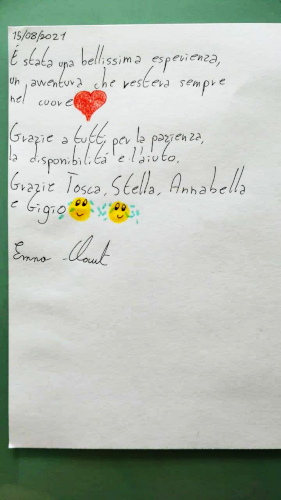 15/08/2021
È stata una bellissima esperienza,
un avventura che resterà sempre
nel cuore
Grazie a tutti per la pazienza,
la disponibilità e l'aiuto.
Grazie Tosca, Stella, Annabella
e Gigio